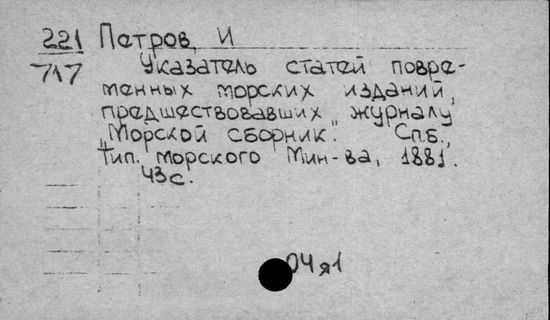 221 Петров, И
717 Указатель статей повре-
менных морских изданий,
предшествовавших журналу
„Морской сборник." Спб.,
Тип. морского Мин-ва, 1881.
43с.
04я1